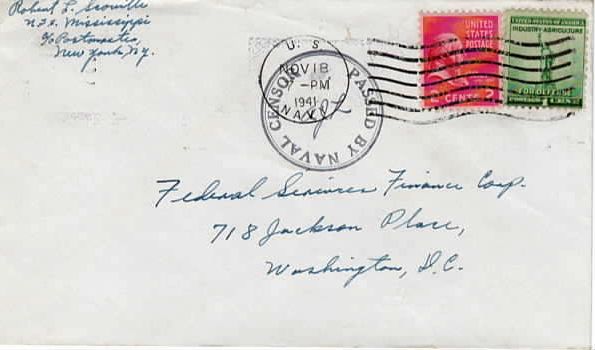 Robert L. Scoville
U.S.S. Mississippi
c/o Postmaster,
New York, N.Y.
U. S.
NOV 18
-PM
1941
NAVY
PASSED BY NAVAL CENSOR
UNITED
STATES
POSTAGE
CENTS 2
UNITED STATES OF AMERICA
INDUSTRY-AGRICULTURE
FOR DEFENSE
POSTAGE 1 CENT
Federal Services Finance Corp.
718 Jackson Place,
Washington, D.C.